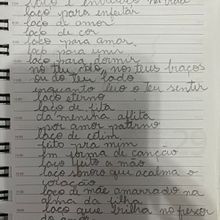 laço para enfeitar
laço de amor
laço de cor
laço para amar
laço para unir
laço para dormir
no teu colo, nos teus braços
ou do teu lado
enquanto leio o teu sentir
laço eterno
laço de fita
da menina aflita
por amor paterno
laço de cetim
feito pra mim
em forma de canção
laço feito a mão
laço sonoro que acalma o
coração
laço da mãe amarrado na
alma da filha
laço que brilha no